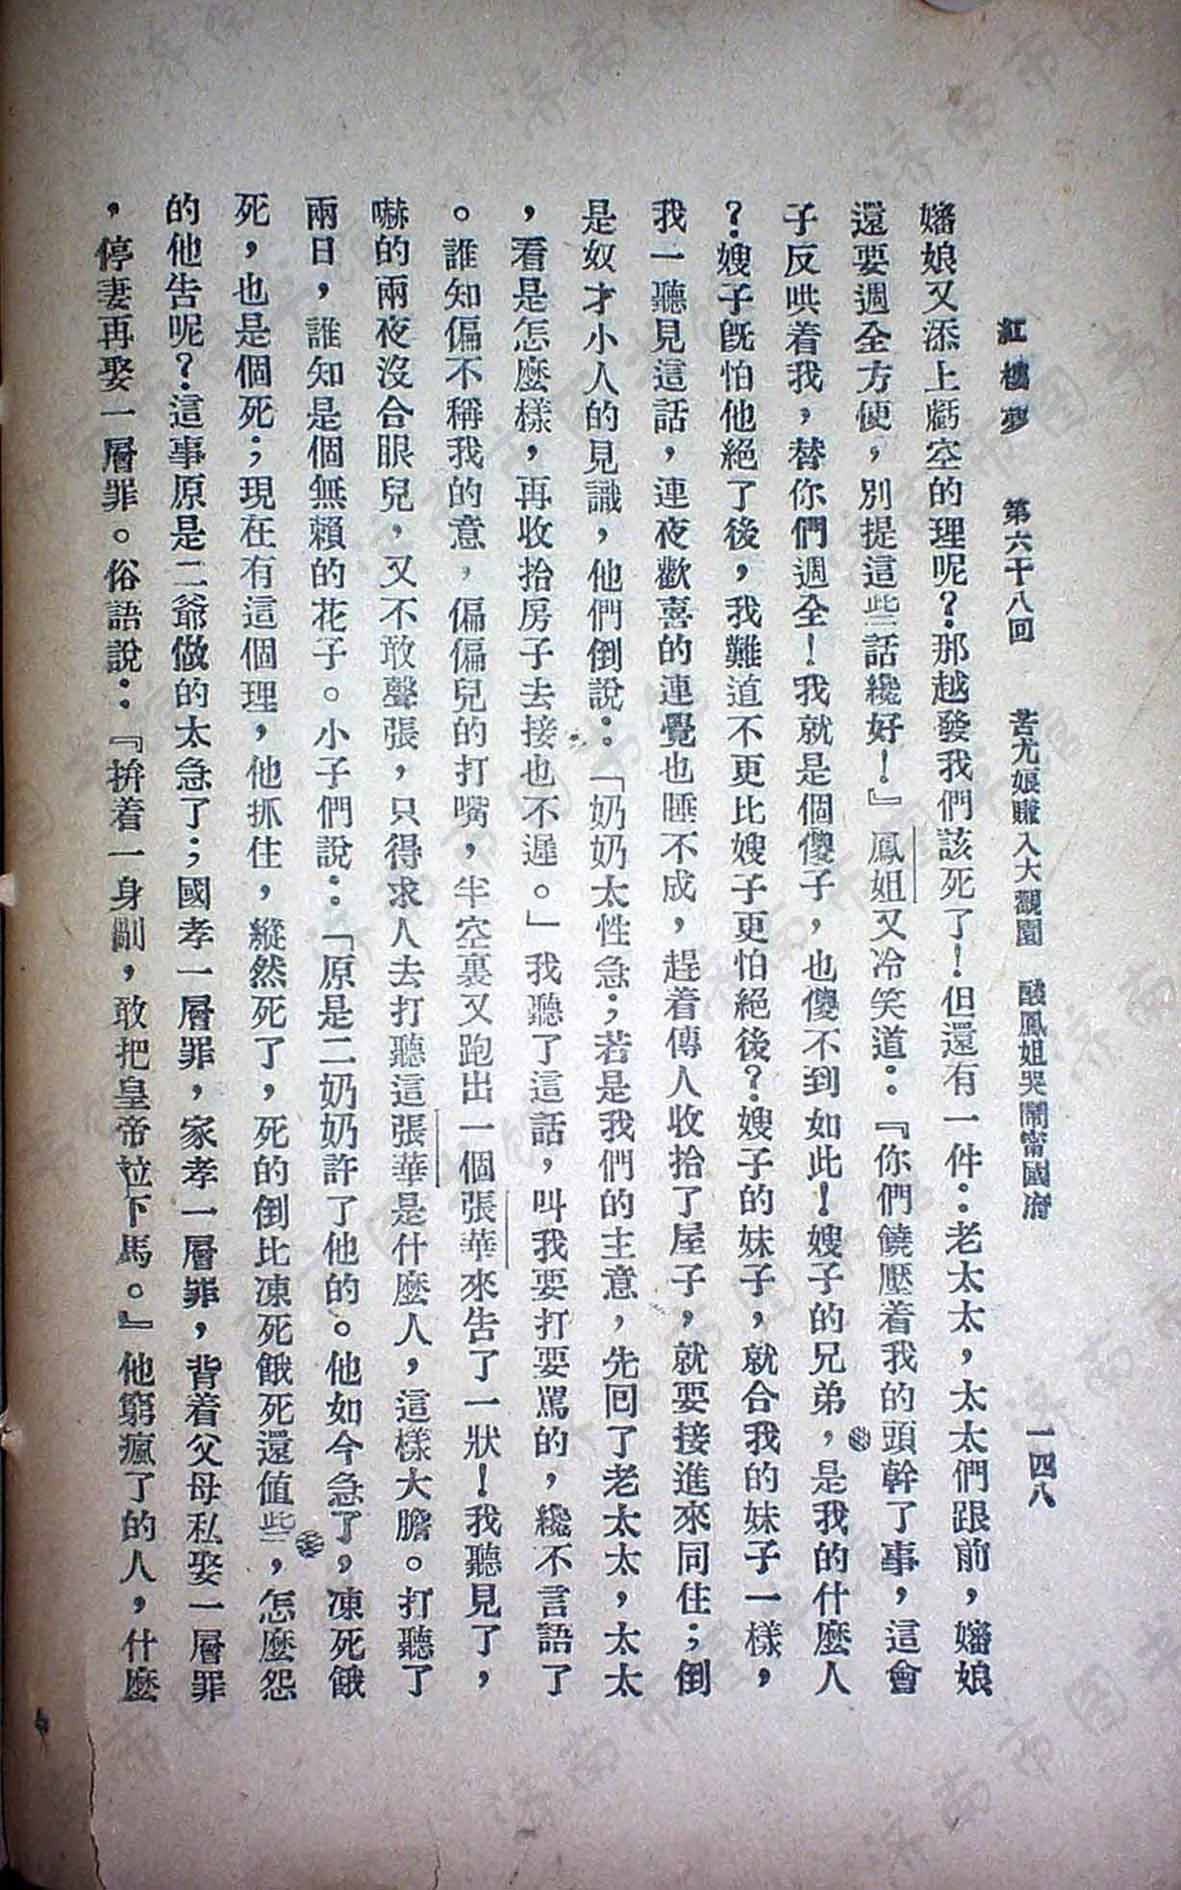 紅樓夢　第六十八回　苦尤娘賺入大觀園　酸鳳姐哭鬧甯國府　一四八
嬸娘又添上虧空的理呢？那越發我們該死了！但還有一件：老太太，太太們跟前，嬸娘
還要週全方便，別提這些話纔好！』鳳姐又冷笑道：『你們饒壓着我的頭幹了事，這會
子反哄着我，替你們週全！我就是個傻子，也傻不到如此！嫂子的兄弟，是我的什麼人
？嫂子旣怕他絕了後，我難道不更比嫂子更怕絕後？嫂子的妹子，就合我的妹子一樣，
我一聽見這話，連夜歡喜的連覺也睡不成，趕着傳人收拾了屋子，就要接進來同住；倒
是奴才小人的見識，他們倒說：「奶奶太性急；若是我們的主意，先回了老太太，太太
，看是怎麼樣，再收拾房子去接也不遲。」我聽了這話，叫我要打要罵的，纔不言語了
。誰知偏不稱我的意，偏偏兒的打嘴，半空裏又跑出一個張華來告了一狀！我聽見了，
嚇的兩夜沒合眼兒，又不敢聲張，只得求人去打聽這張華是什麼人，這樣大膽。打聽了
兩日，誰知是個無賴的花子。小子們說：「原是二奶奶許了他的。他如今急了，凍死餓
死，也是個死；現在有這個理，他抓住，縱然死了，死的倒比凍死餓死還值些，怎麼怨
的他告呢？這事原是二爺做的太急了；國孝一層罪，家孝一層罪，背着父母私娶一層罪
，停妻再娶一層罪。俗語說：『拚着一身剮，敢把皇帝拉下馬。』他窮瘋了的人，什麼
濟南市图书馆